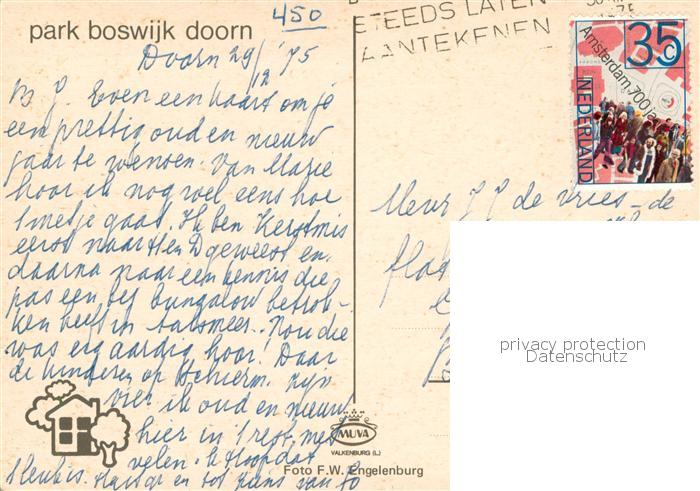 450
park boswijk doorn
Doorn 29/12 '75
B J. Even een kaart om je
een prettig oud en nieuw
jaar te wensen. Van Marie
hoor ik nog wel eens hoe
't met je gaat. Ik ben Kerstmis
eerst naar H en D geweest en
daarna naar een kennis die
pas een bungalow betrok-
ken heeft in Aalsmeer. Nou die
was erg aardig hoor! Daar
de kinderen op Schierm. zijn
vier ik oud en nieuw
hier in 't rest. met
velen. Ik hoop dat
en tot ziens van
STEEDS LATEN
AANTEKENEN
35c
Amsterdam 700 ja
NEDERLAND
Mevr J J de Vries-de
privacy protection
Datenschutz
MUVA
VALKENBURG (L.)
Foto F.W. Engelenburg